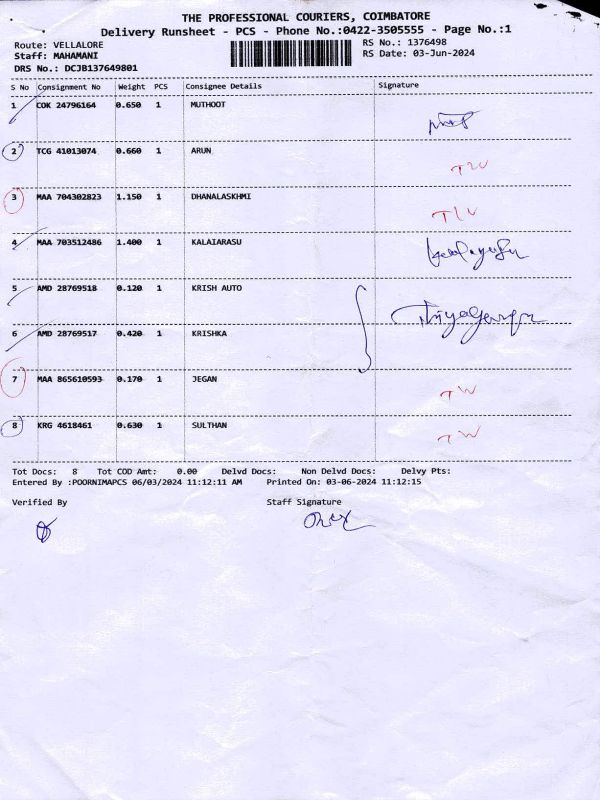 THE PROFESSIONAL COURIERS, COIMBATORE
Delivery Runsheet - PCS - Phone No.:0422-3505555 - Page No.:1
Route: VELLALORE RS No.: 1376498
Staff: MAHAMANI RS Date: 03-Jun-2024
DRS No.: DCJB137649801
S No Consignment No Weight PCS Consignee Details Signature
1 COK 24796164 0.650 1 MUTHOOT
2 TCG 41013074 0.660 1 ARUN
3 MAA 704302823 1.150 1 DHANALASKHMI
4 MAA 703512486 1.400 1 KALAIARASU
5 AMD 28769518 0.120 1 KRISH AUTO
6 AMD 28769517 0.420 1 KRISHKA
7 MAA 865610593 0.170 1 JEGAN
8 KRG 4618461 0.630 1 SULTHAN
Tot Docs: 8 Tot COD Amt: 0.00 Delvd Docs: Non Delvd Docs: Delvy Pts:
Entered By :POORNIMAPCS 06/03/2024 11:12:11 AM Printed On: 03-06-2024 11:12:15
Verified By Staff Signature